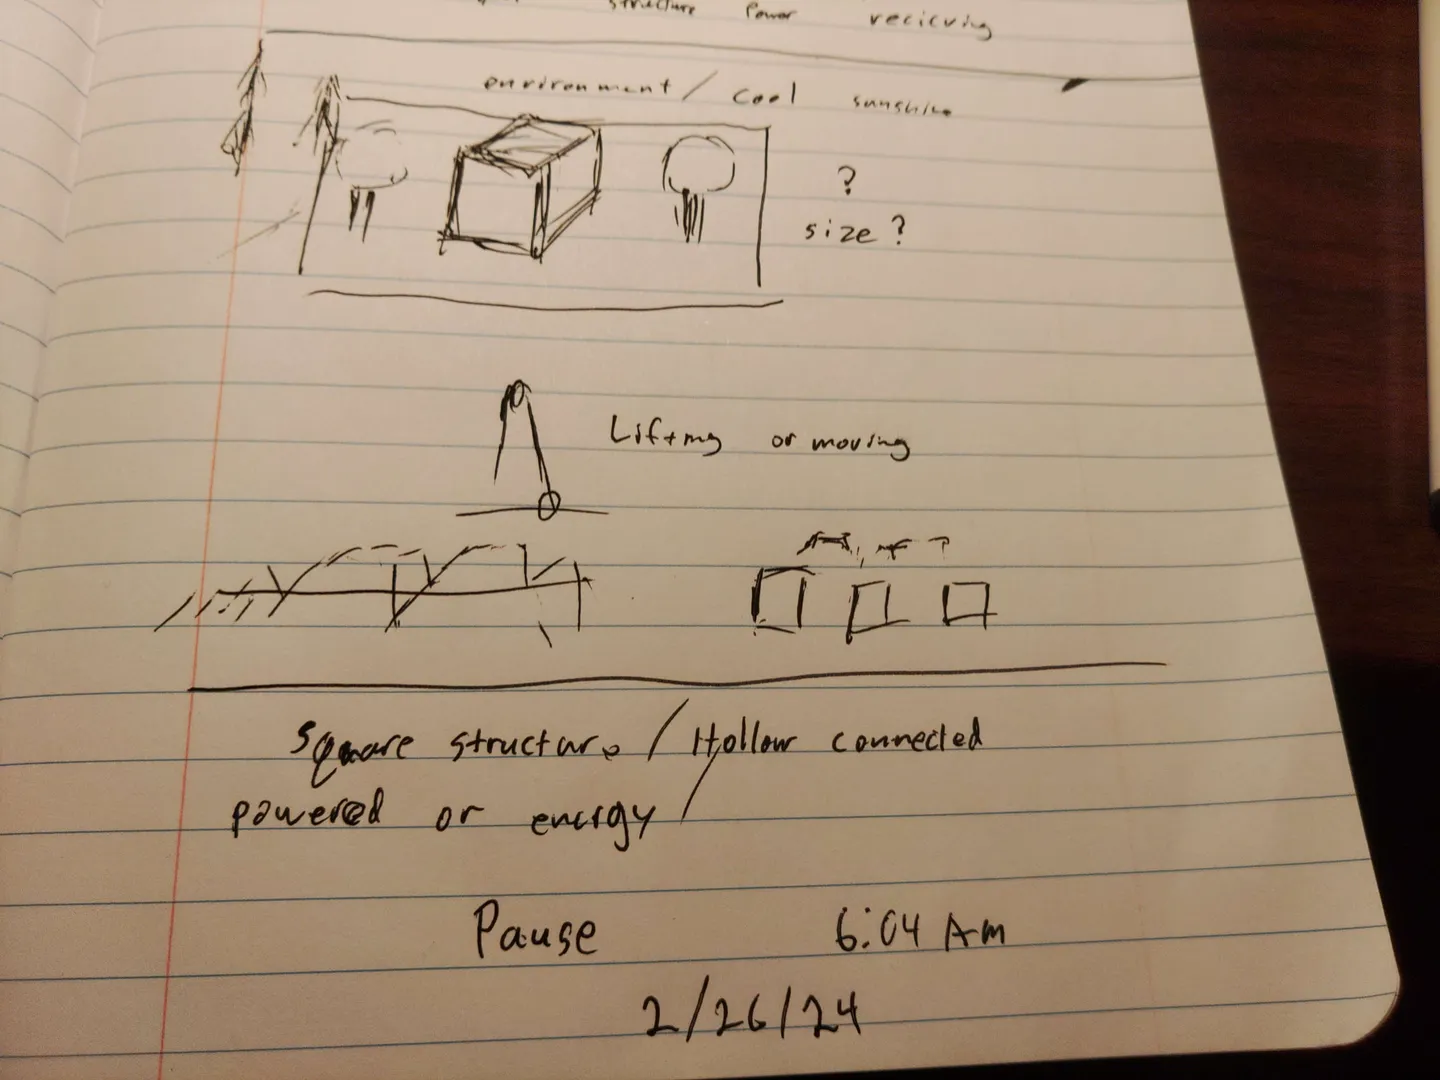 structure Power recicving
environment / cool sunshine
?
size ?
Lifting or moving
?
Square structure / Hollow connected
powered or energy /
Pause 6:04 Am
2/26/24